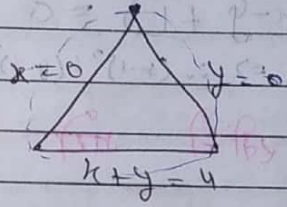 x = 0
y = 0
x + y = 4